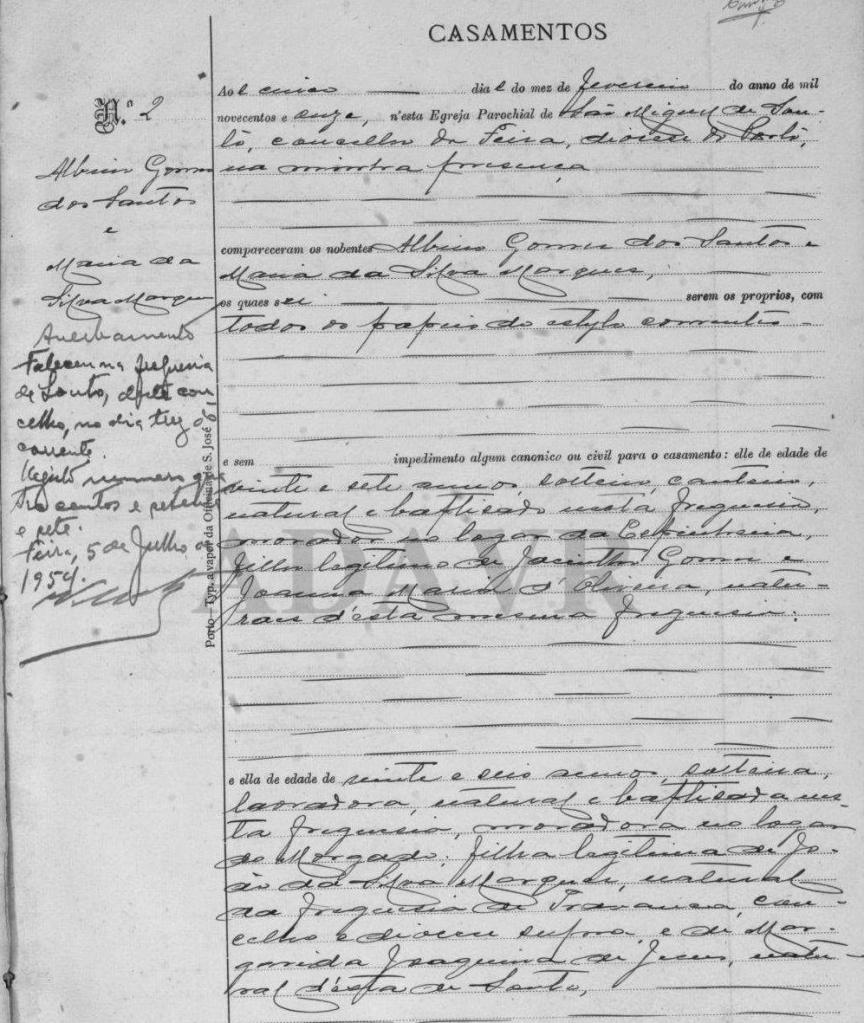 CASAMENTOS
N.º 2
Albino Gomes
dos Santos
e
Maria da
Silva Marques
Averbamento
Faleceu na freguesia
de Souto, deste con-
celho, no dia trez do
corrente.
Registo numero qua-
tro centos e setenta
e sete.
Feira, 5 de Julho de
1954.
Porto—Typ. a vapor da Officina de S. José
Aos cinco dias do mez de Fevereiro do anno de mil
novecentos e onze, n'esta Egreja Parochial de São Miguel de Sou-
to, concelho da Feira, diocese do Porto,
na minha presença
compareceram os nubentes Albino Gomes dos Santos e
Maria da Silva Marques,
os quaes sei serem os proprios, com
todos os papeis do estylo correntes
e sem impedimento algum canonico ou civil para o casamento: elle de edade de
vinte e sete annos, solteiro,
natural e baptisado nesta freguesia,
morador no logar da
filho legitimo de Jacintho Gomes e
Joanna Maria d'Oliveira, natu-
raes d'esta mesma freguesia:
e ella de edade de vinte e seis annos, solteira,
lavradora, natural e baptisada nes-
ta freguesia, moradora no logar
do Morgado, filha legitima de Jo-
ão da Silva Marques, natural
da freguesia de Travanca, con-
celho e diocese supra, e de Mar-
garida Joaquina de Jesus, natu-
ral d'esta de Souto,
ADAVR